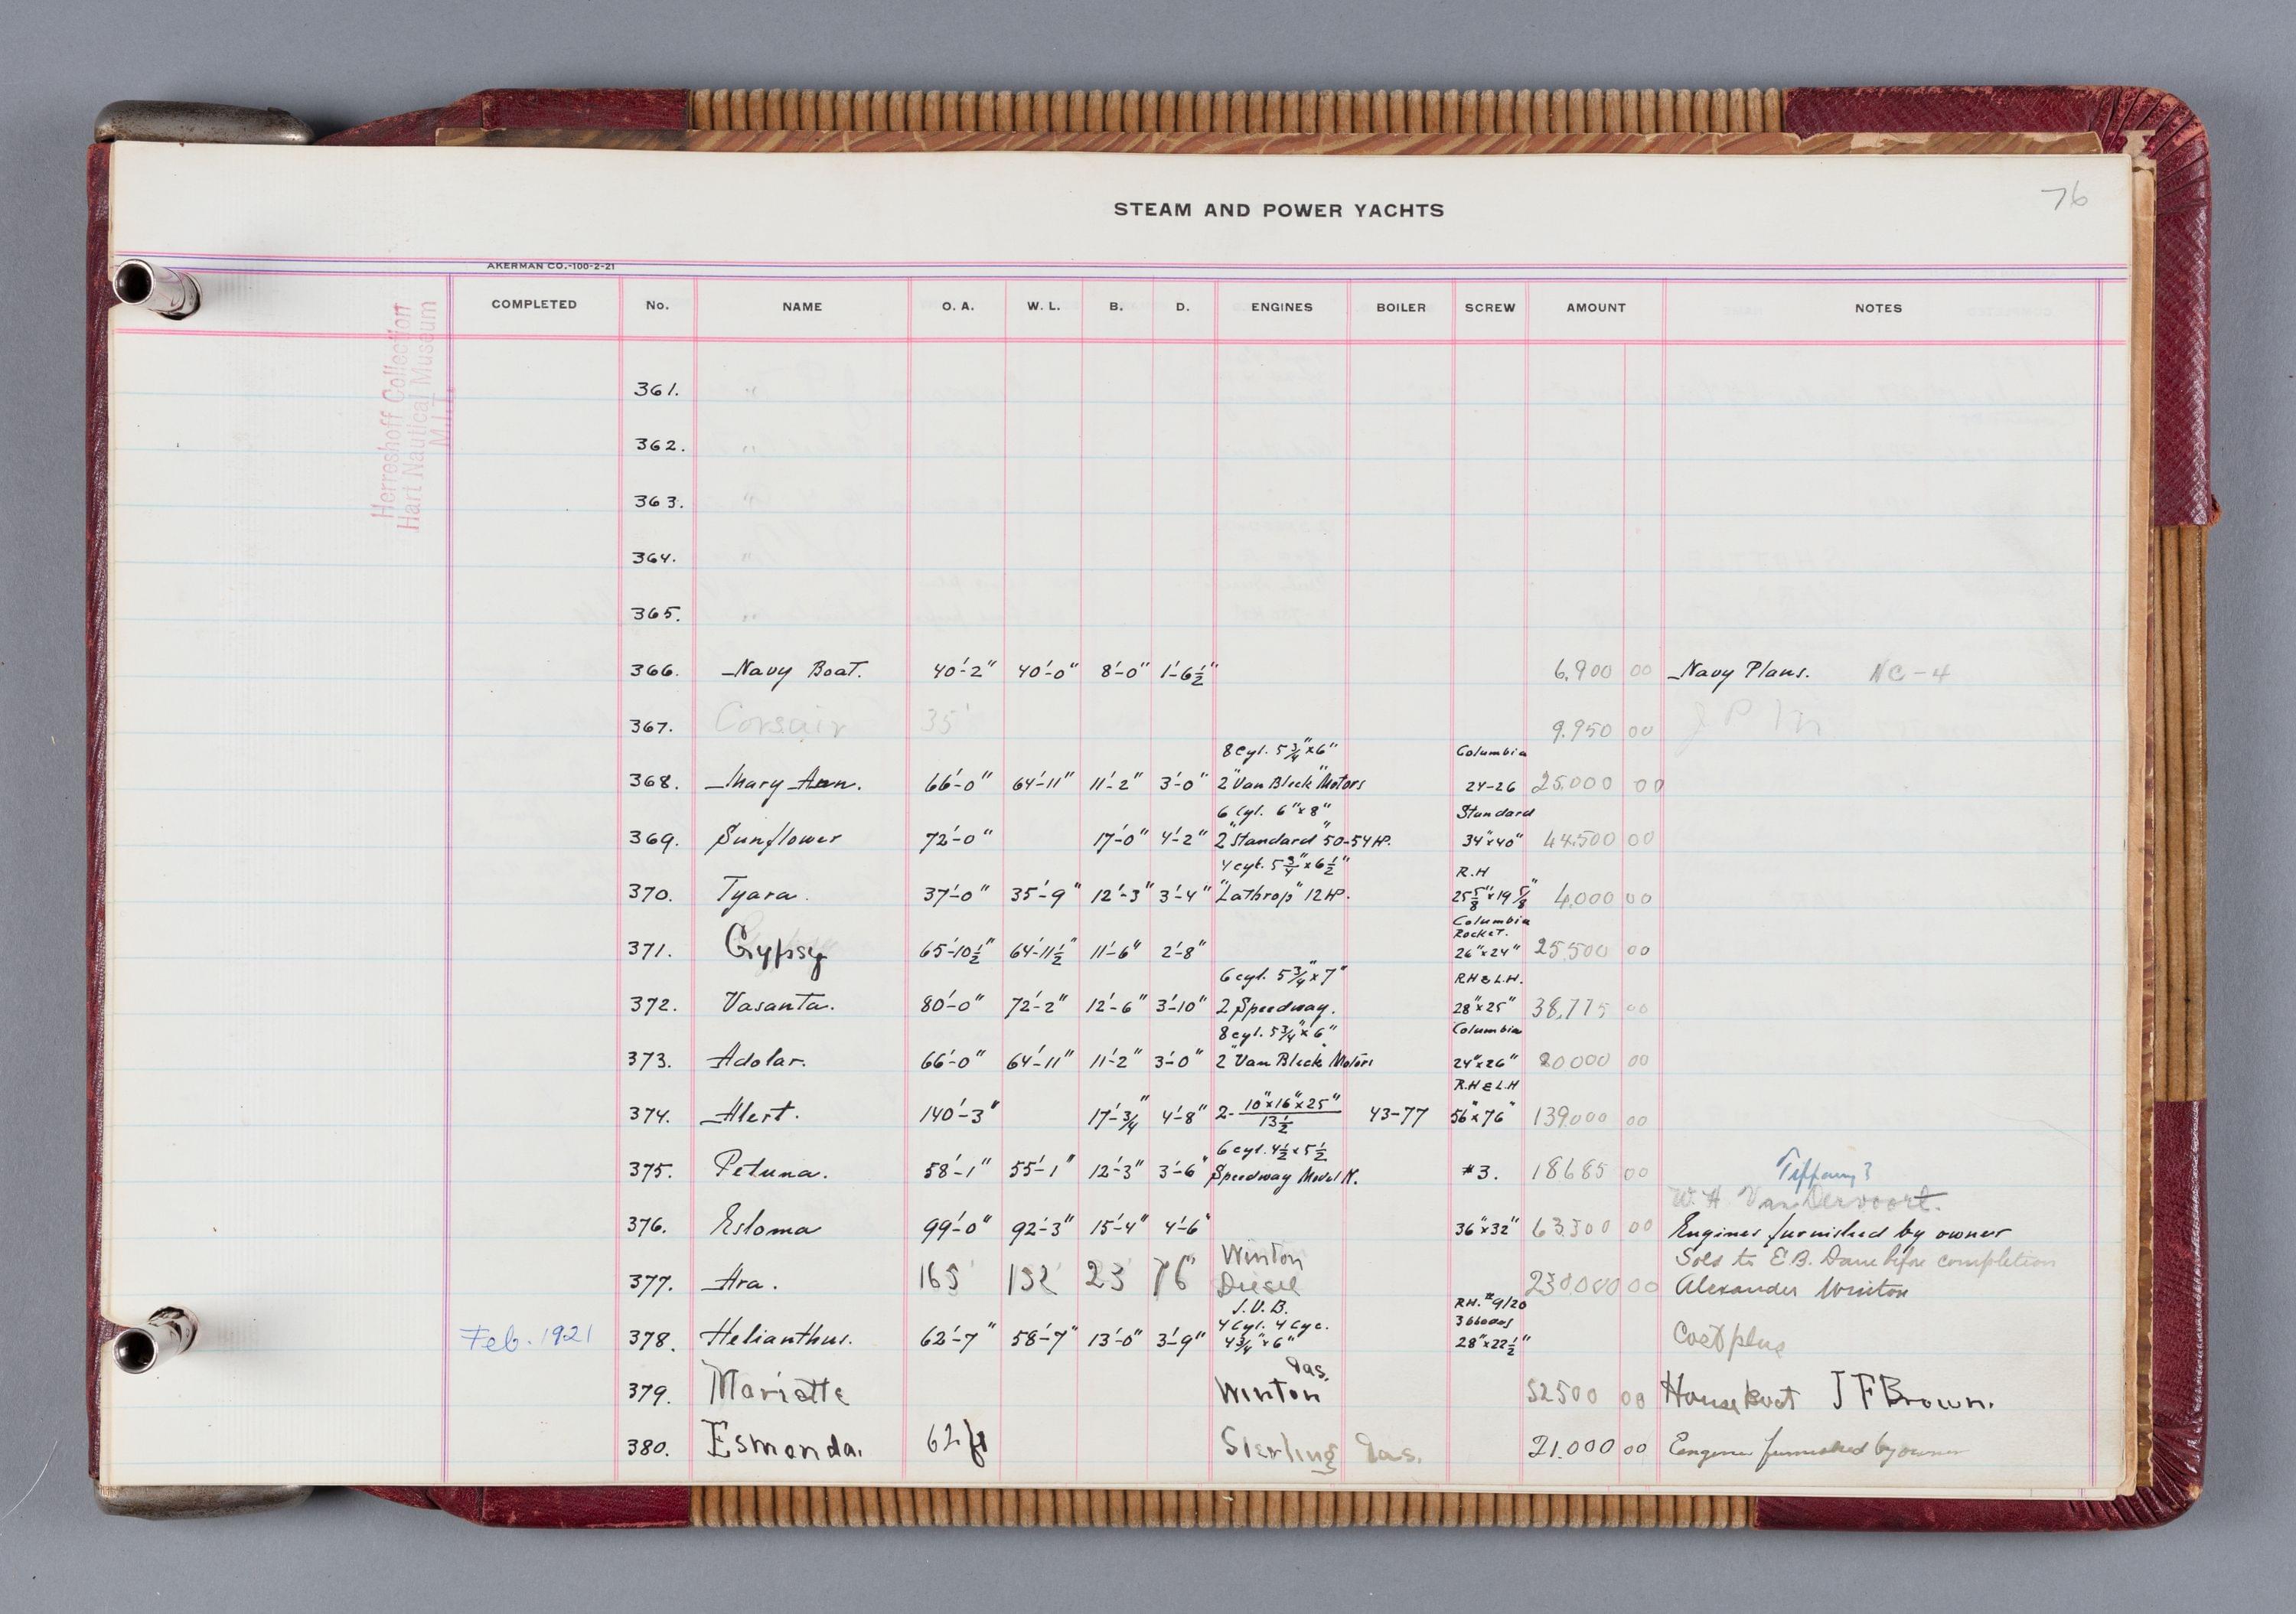 76
STEAM AND POWER YACHTS
AKERMAN CO.-100-2-21
COMPLETED No. NAME O. A. W. L. B. D. ENGINES BOILER SCREW AMOUNT NOTES
Herreshoff Collection
Hart Nautical Museum
M.I.T.
361. "
362. "
363. "
364. "
365. "
366. Navy Boat. 40'-2" 40'-0" 8'-0" 1'-6½" 6,900 00 Navy Plans. NC-4
367. Corsair 35' 9.950 00 J P M
8 cyl. 5¾"x6" Columbia
368. Mary Ann. 66'-0" 64'-11" 11'-2" 3'-0" 2 "Van Bleck" Motors 24-26 25.000 00
6 Cyl. 6"x8" Standard
369. Sunflower 72'-0" 17'-0" 4'-2" 2 "Standard" 50-54 HP. 34"x40" 44.500 00
4 cyl. 5¾"x6½" R.H
370. Tyara. 37'-0" 35'-9" 12'-3" 3'-4" "Lathrop" 12 HP. 25⅝"x19⅝" 4.000 00
Columbia
Rocket.
371. Gypsy 65'-10½" 64'-11½" 11'-6" 2'-8" 26"x24" 25.500 00
6 cyl. 5¾"x7" RH & L.H.
372. Vasanta. 80'-0" 72'-2" 12'-6" 3'-10" 2 Speedway. 28"x25" 38,775 00
8 cyl. 5¾"x6" Columbia
373. Adolar. 66'-0" 64'-11" 11'-2" 3'-0" 2 "Van Bleck" Motors 24"x26" 20000 00
R.H & L.H
374. Alert. 140'-3" 17'-¾" 4'-8" 2- 10"x16"x25" / 13½ 43-77 56"x76" 139000 00
6 cyl. 4½x5½
375. Petuna. 58'-1" 55'-1" 12'-3" 3'-6" Speedway Model M. #3. 18685 00 Tiffany?
W. H Van Dervoort.
376. Esloma 99'-0" 92'-3" 15'-4" 4'-6" 36"x32" 63.300 00 Engines furnished by owner
Winton Sold to E.B. Dane before completion
377. Ara. 165' 152' 23' 76" Diesel 230.000 00 Alexander Winton
J.V.B. RH. #9/20
4 Cyl. 4 Cyc. 3 blades
Feb. 1921 378. Helianthus. 62'-7" 58'-7" 13'-0" 3'-9" 4¾"x6" 28"x22½" Cost plus
Gas.
379. Mariette Winton 52500 00 Houseboat J F Brown.
380. Esmonda. 62 ft Sterling Gas. 21.000 00 Engines furnished by owner